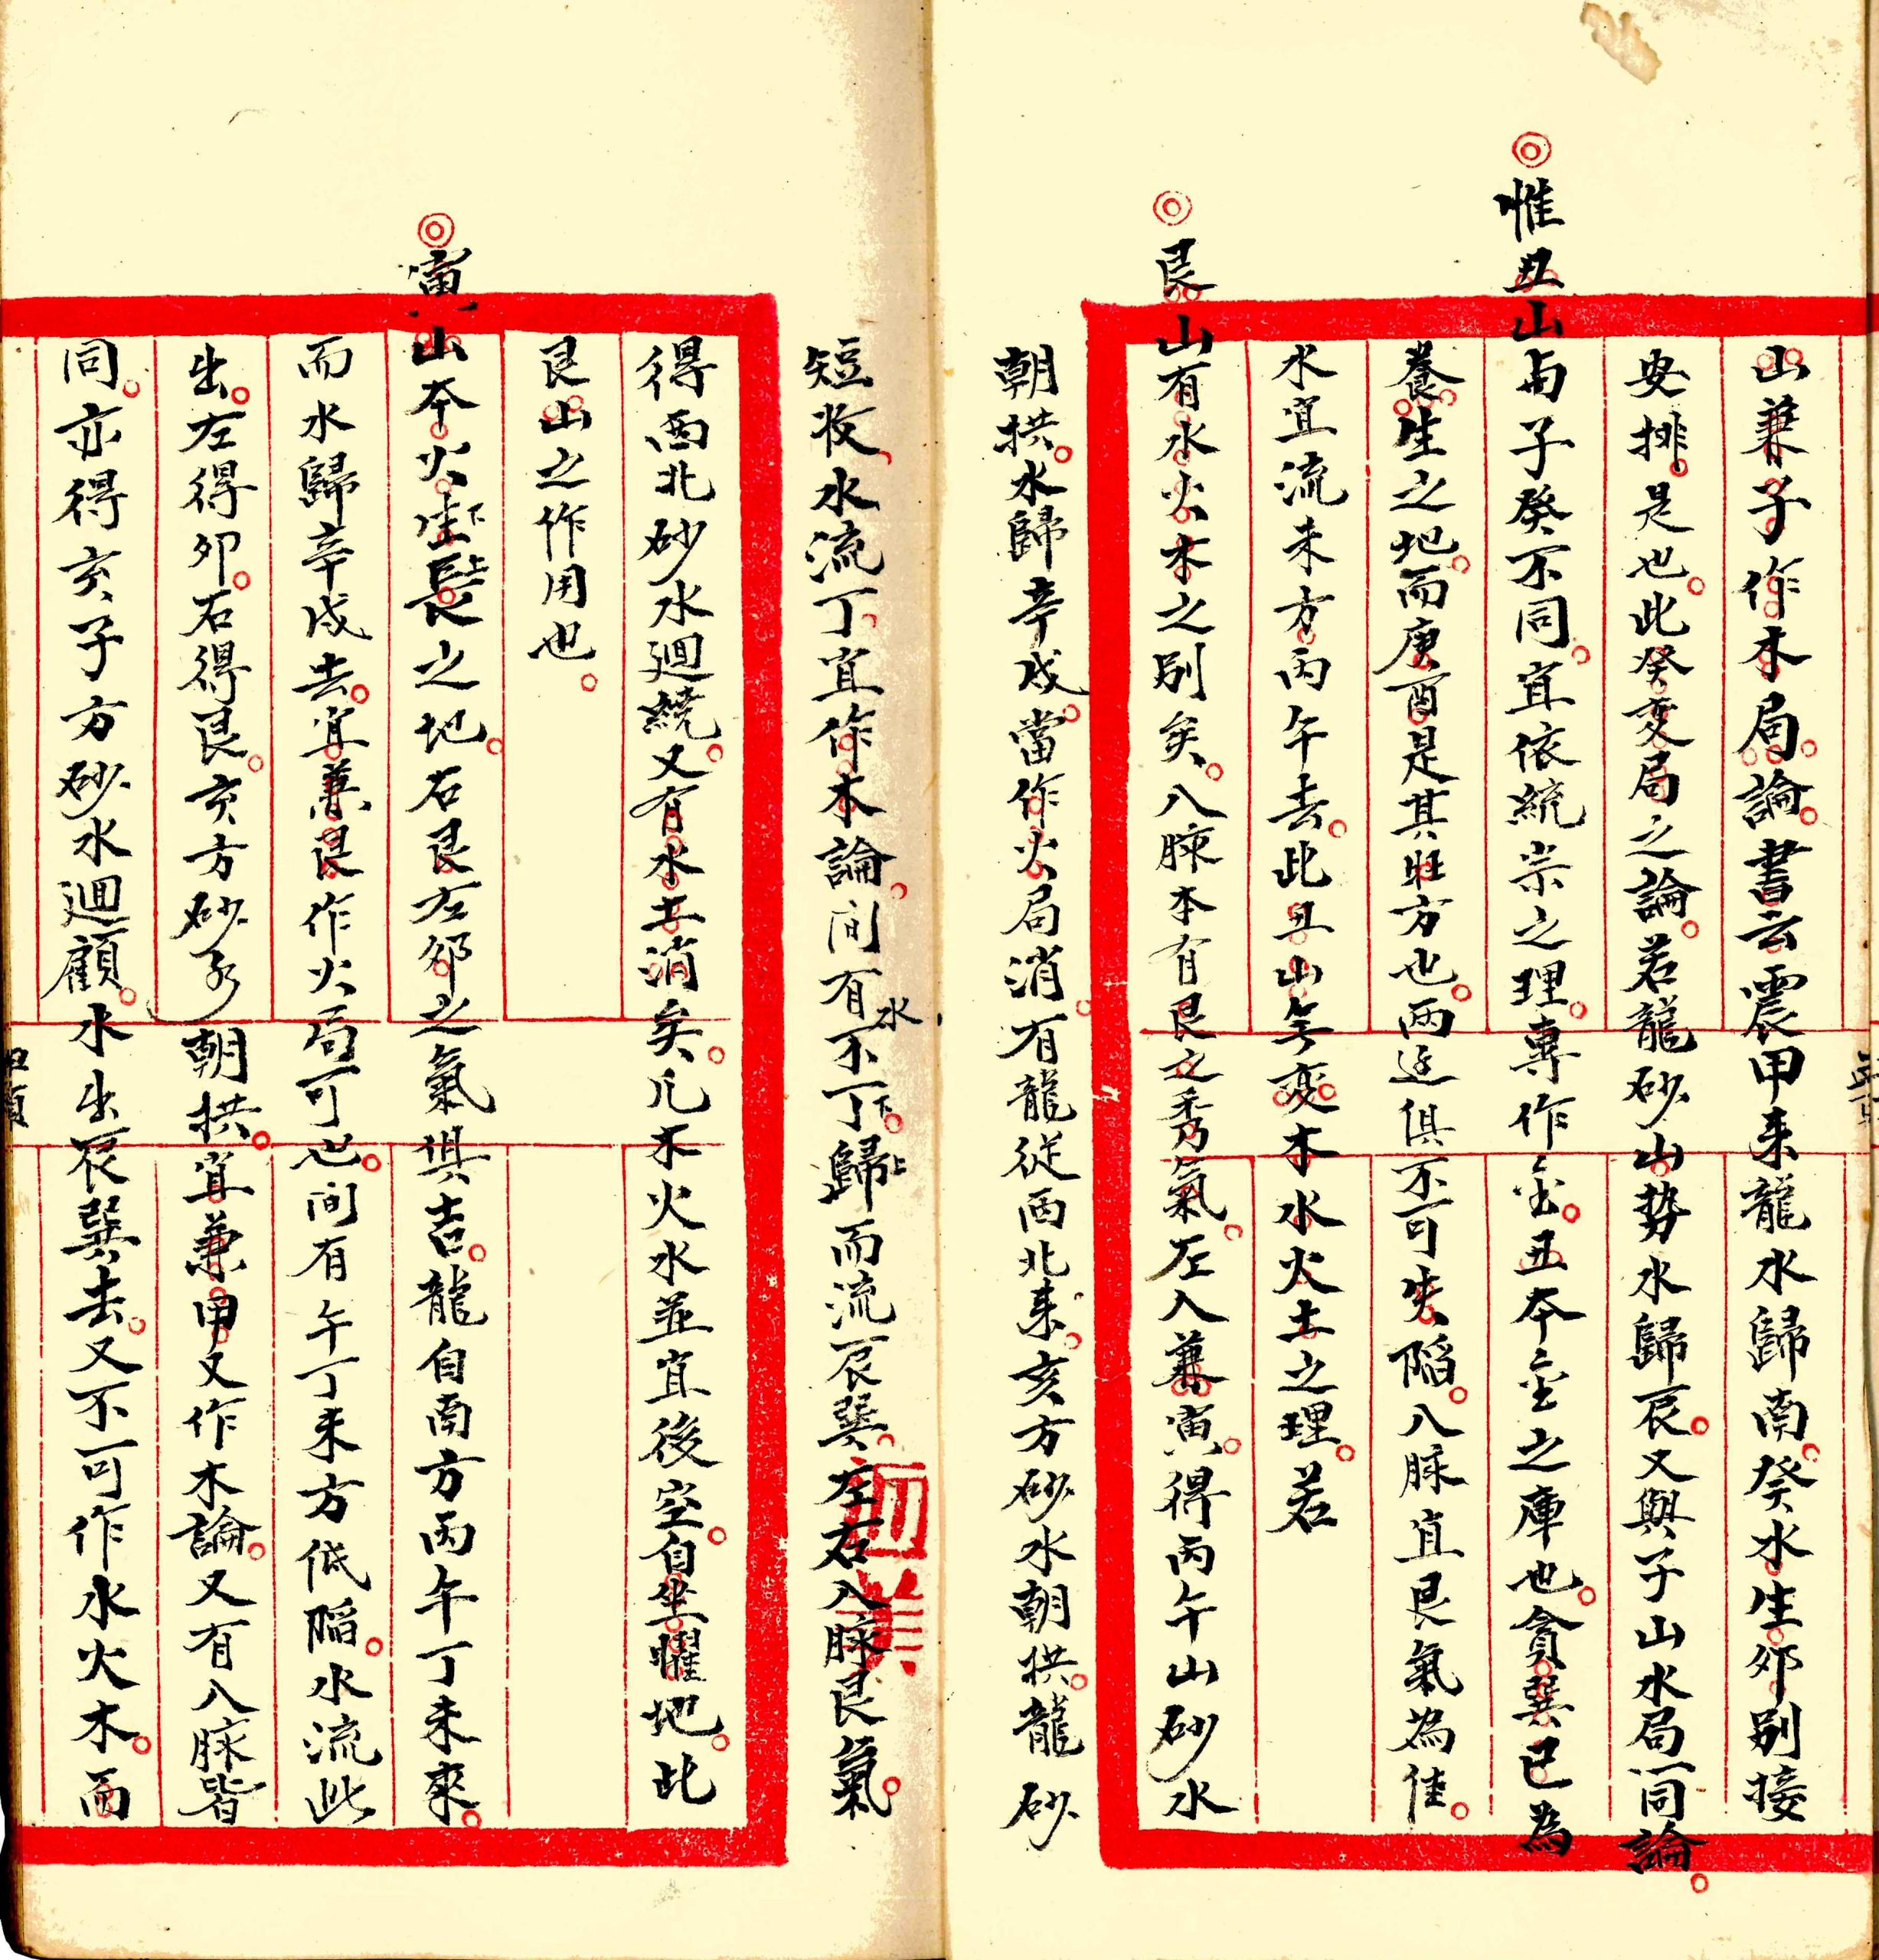 山兼子作木局論書云震甲来龍水歸南癸水生卯别接
安排是也此癸变局之論若龍砂山势水歸辰又與子山水局同論
惟丑山与子癸不同宜依統宗之理專作金丑本金之庫也貪巽已為
養生之地而庚酉是其旺方也两边俱不可失陷八脉宜艮氣為佳
水宜流未方丙午去此丑山無变木水火土之理若
艮山有水火木之别矣八脉本有艮之秀氣左入兼寅得丙午山砂水
朝拱水歸辛戌當作火局消有龍從西北来亥方砂水朝拱龍砂
短收水流丁宜作木論间有水不丁歸而流辰巽左右入脉艮氣
得西北砂水廻繞又有水土消矣凡木火水並宜後空自坐曜地此
艮山之作用也
寅山本火生長之地右艮左卯之氣俱吉龍自南方丙午丁未來
而水歸辛戌去宜兼艮作火局可也间有午丁未方低陷水流此
出左得卯右得艮亥方砂水朝拱宜兼甲又作木論又有八脉皆
同亦得亥子方砂水廻顧水出辰巽去又不可作水火木而